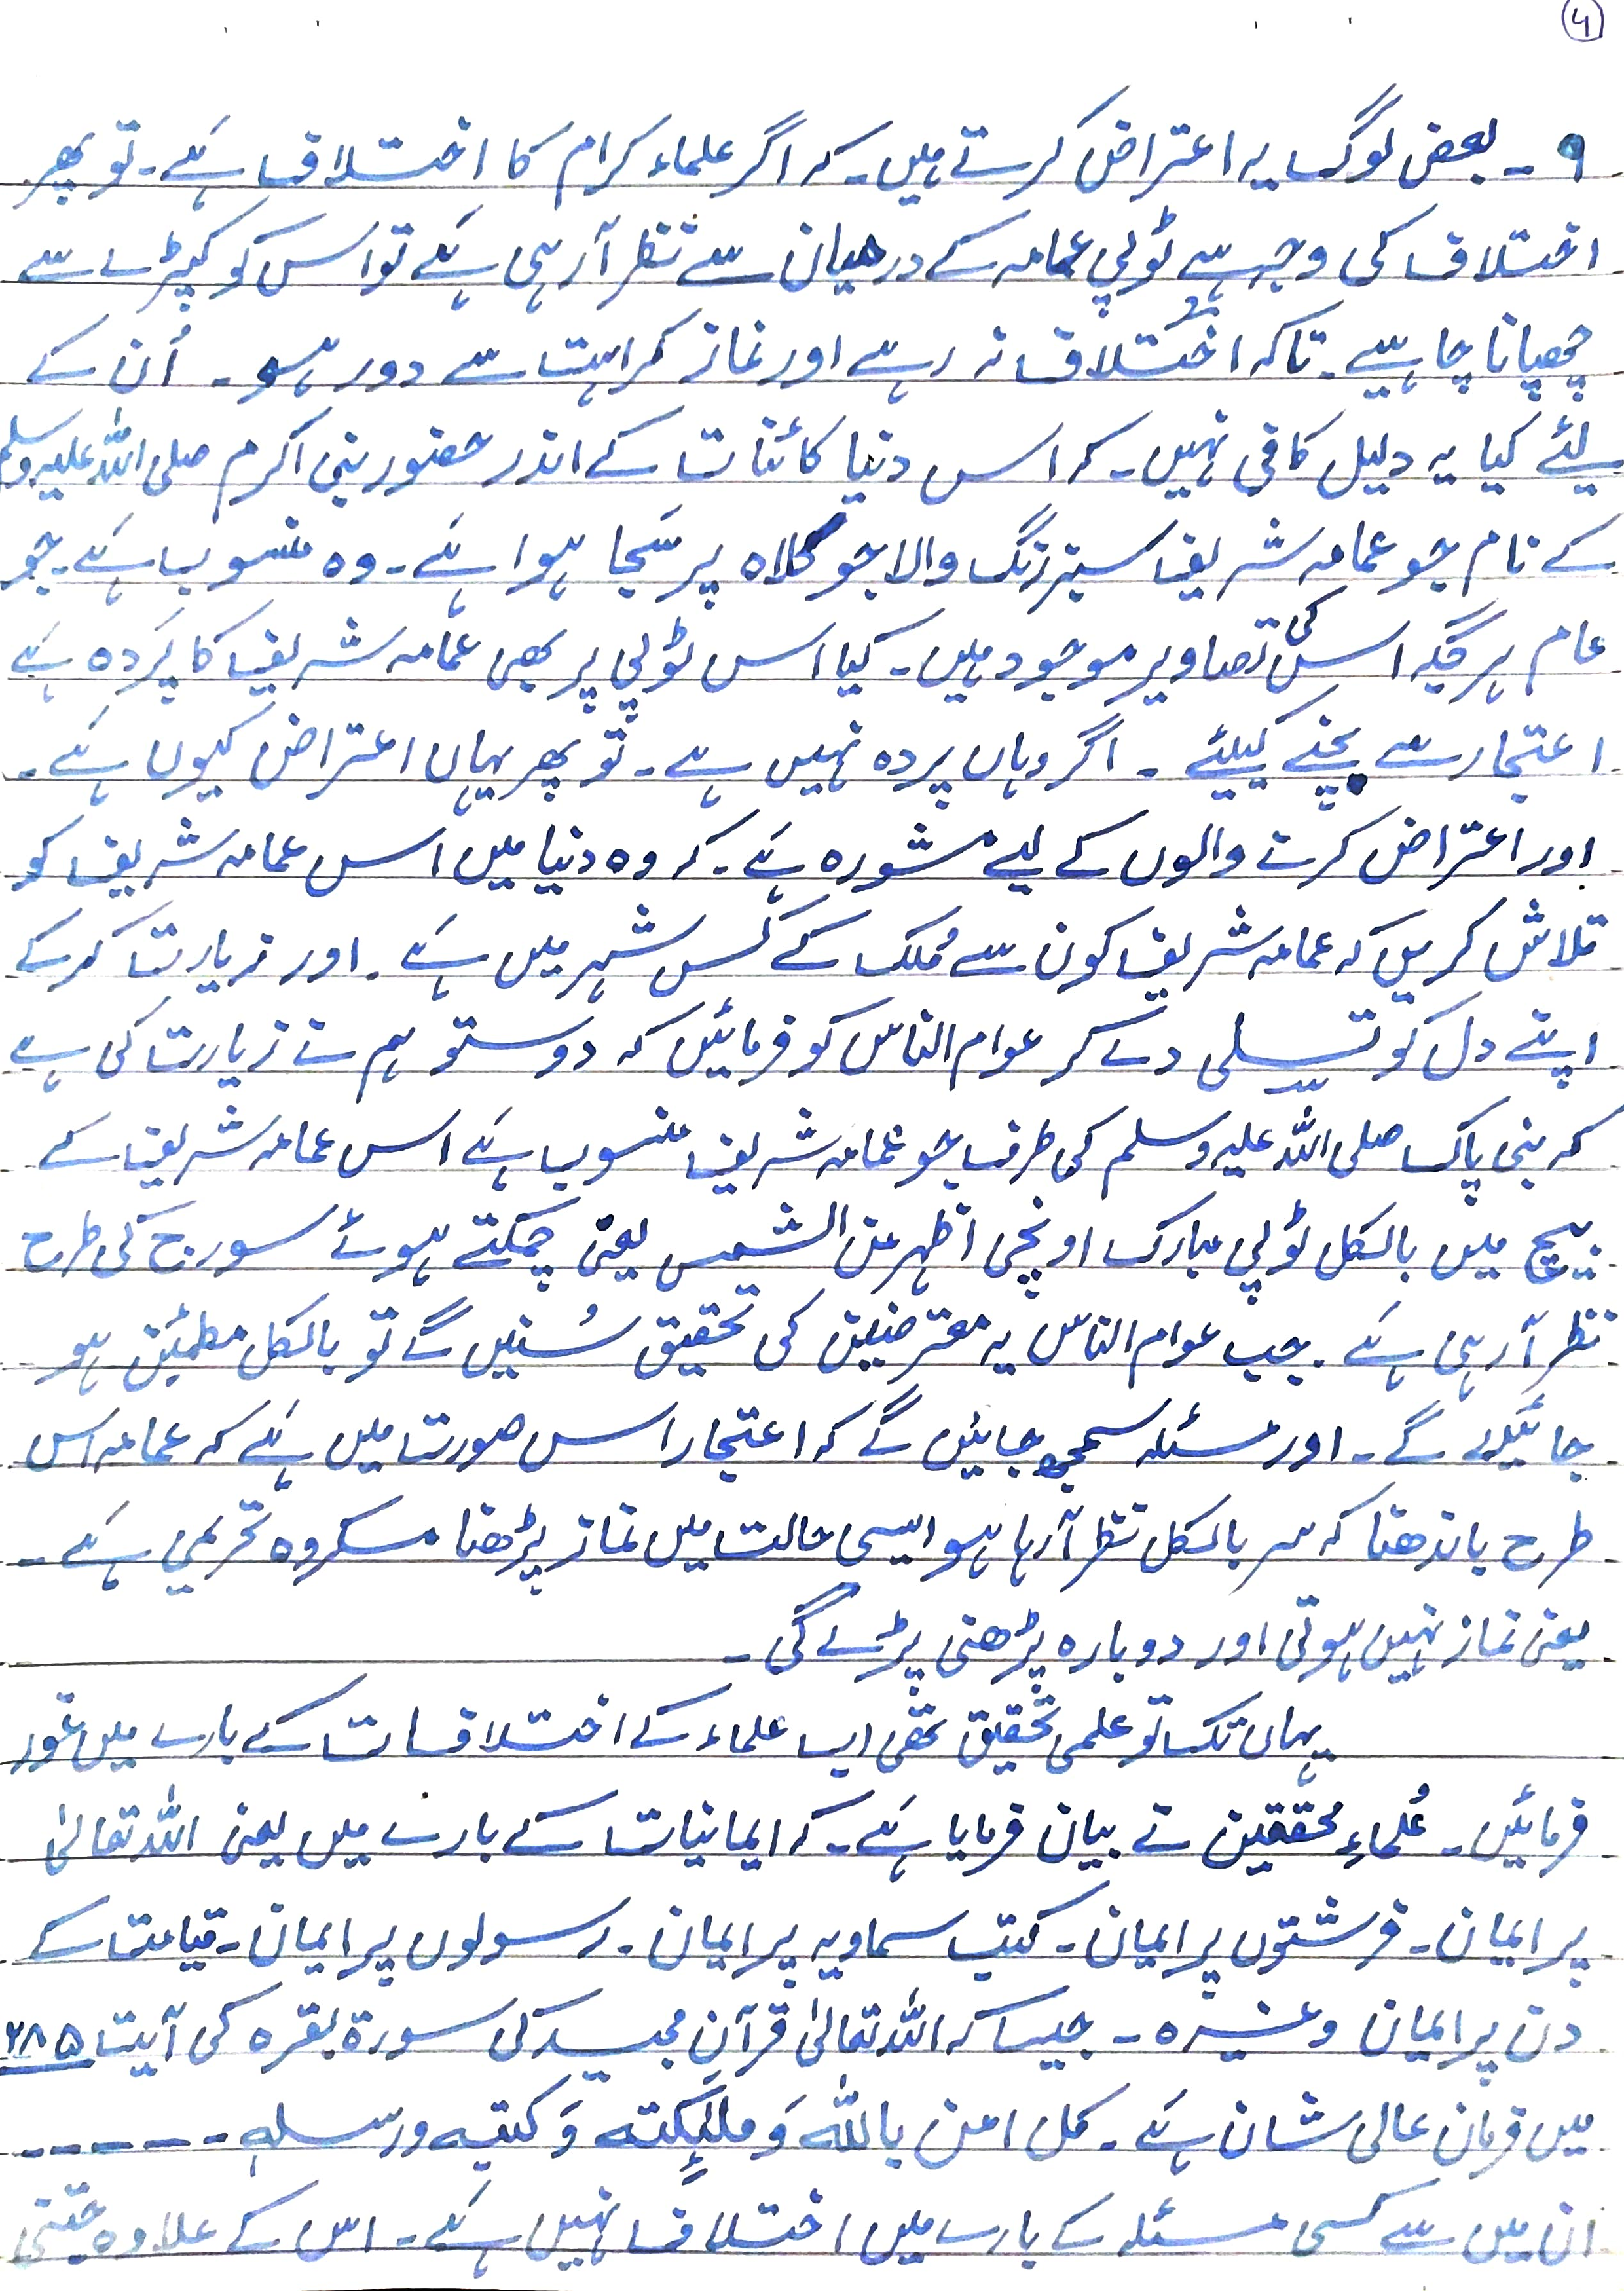 ۴
۹ ۔ بعض لوگ یہ اعتراض کرتے ہیں۔ کہ اگر علماء کرام کا اختلاف ہے۔ تو پھر
اختلاف کی وجہ سے ٹوپی عمامہ کے درمیان سے نظر آ رہی ہے تو اس کو کپڑے سے
چھپانا چاہیے۔ تاکہ اختلاف نہ رہے اور نماز کراہت سے دور ہو ۔ اُن کے
لیئے کیا یہ دلیل کافی نہیں۔ کہ اس دنیا کائنات کے اندر حضور نبی اکرم صلی اللہ علیہ وسلم
کے نام جو عمامہ شریف سبز رنگ والا جو کلاہ پر سَجا ہوا ہے۔ وہ منسوب ہے۔ جو
عام ہر جگہ اس کی تصاویر موجود ہیں۔ کیا اس ٹوپی پر بھی عمامہ شریف کا پردہ ہے
اعتجار سے بچنے کیلئے ۔ اگر وہاں پردہ نہیں ہے ۔ تو پھر یہاں اعتراض کیوں ہے ۔
اور اعتراض کرنے والوں کے لیے مشورہ ہے ۔ کہ وہ دنیا میں اس عمامہ شریف کو
تلاش کریں کہ عمامہ شریف کون سے مُلک کے کِس شہر میں ہے ۔ اور زیارت کر کے
اپنے دل کو تسلی دے کر عوام الناس کو فرمائیں کہ دوستو ہم نے زیارت کی ہے
کہ نبی پاک صلی اللہ علیہ وسلم کی طرف جو عمامہ شریف منسوب ہے اس عمامہ شریف کے
بیچ میں بالکل ٹوپی مبارک اونچی اظہر من الشمس یعنی چمکتے ہوئے سورج کی طرح
نظر آ رہی ہے ۔ جب عوام الناس یہ معترضین کی تحقیق سُنیں گے تو بالکل مطمئن ہو
جائیں گے ۔ اور مسئلہ سمجھ جائیں گے کہ اعتجار اس صورت میں ہے کہ عمامہ اس
طرح باندھنا کہ سر بالکل نظر آ رہا ہو ایسی حالت میں نماز پڑھنا مکروہ تحریمی ہے ۔
یعنی نماز نہیں ہوتی اور دوبارہ پڑھنی پڑے گی ۔
یہاں تک تو علمی تحقیق تھی اب علماء کے اختلافات کے بارے میں غور
فرمائیں ۔ عُلماءِ محققین نے بیان فرمایا ہے ۔ کہ ایمانیات کے بارے میں یعنی اللہ تعالیٰ
پر ایمان ۔ فرشتوں پر ایمان ۔ کتب سماویہ پر ایمان ۔ رسولوں پر ایمان ۔ قیامت کے
دن پر ایمان وغیرہ ۔ جیسا کہ اللہ تعالیٰ قرآنِ مجید کی سورۃ بقرہ کی آیت ۲۸۵
میں فرمان عالی شان ہے ۔ کل امن باللہ وَ ملٰٓئِکتہ وَ کتبہ ورسلہٖ ۔ ۔ ۔ ۔ ۔ ۔
ان میں سے کسی مسئلہ کے بارے میں اختلاف نہیں ہے ۔ اس کے علاوہ جتنی